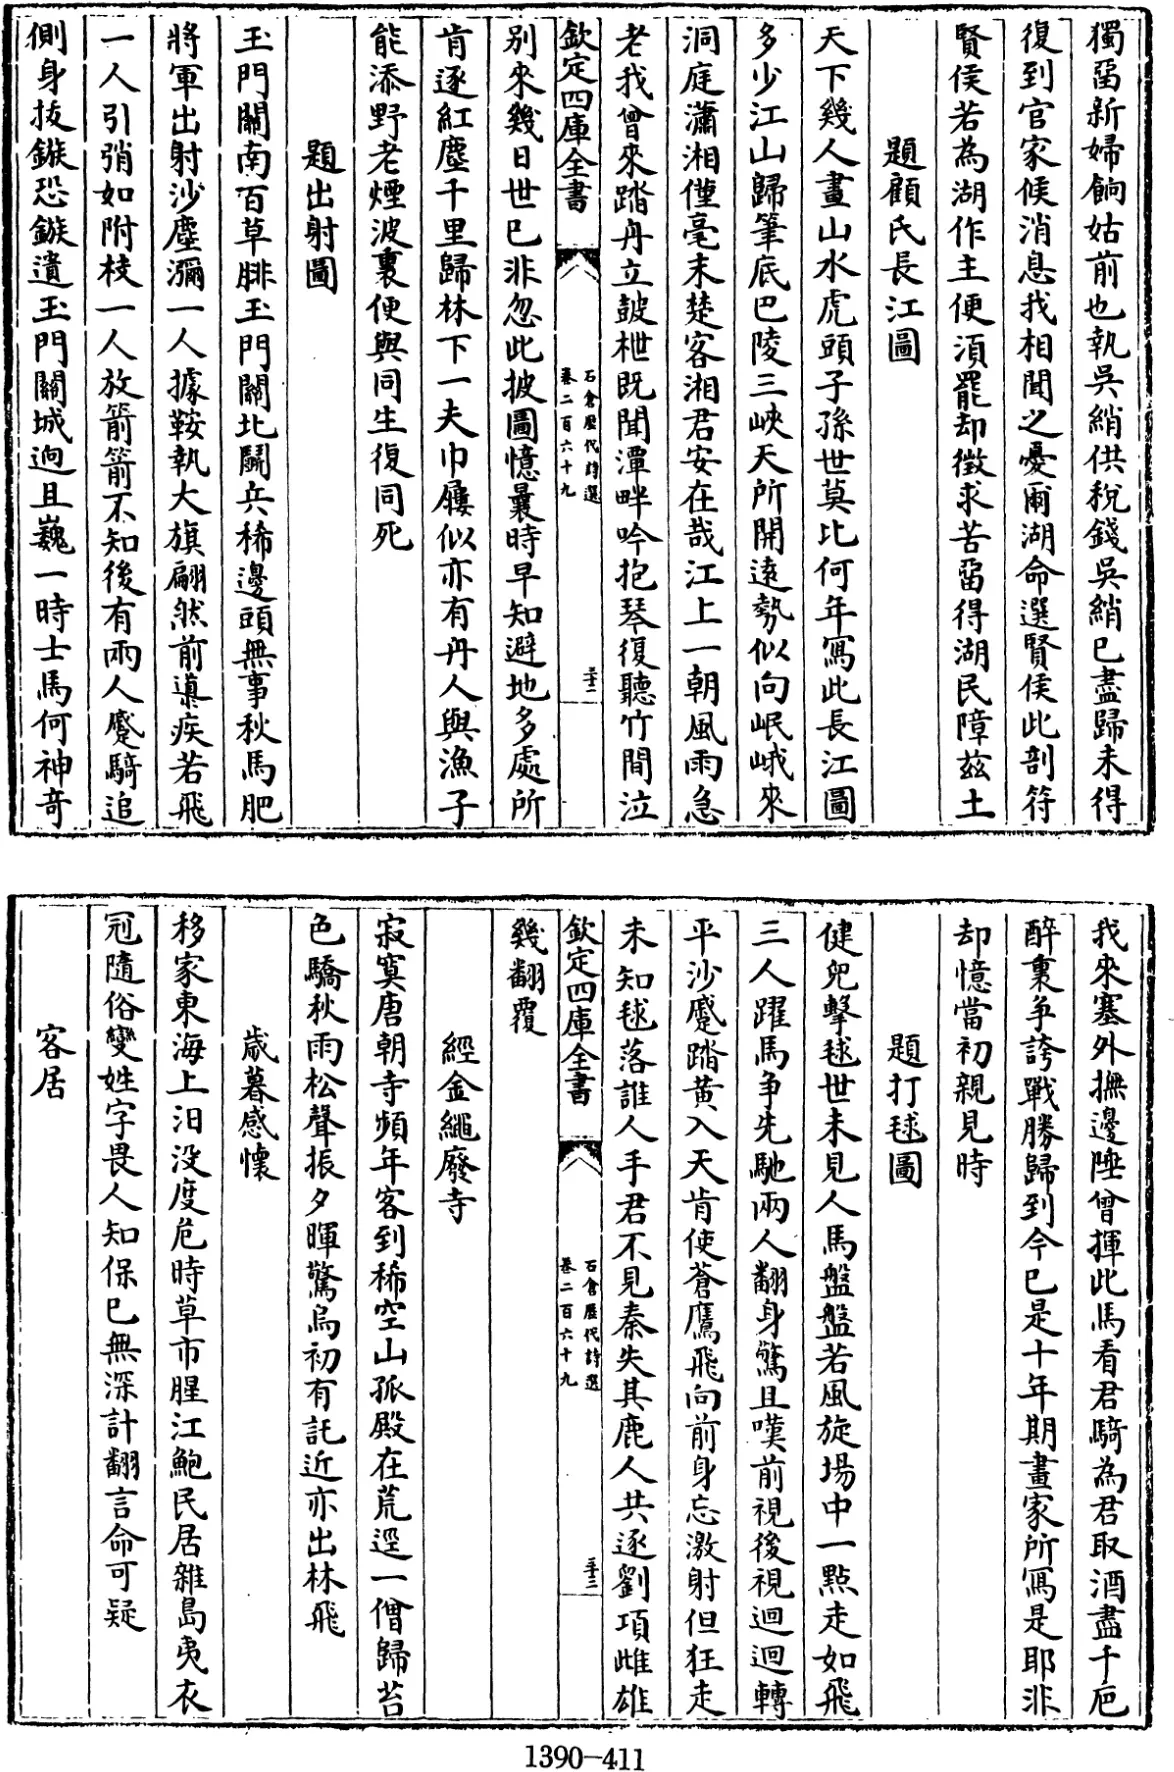 獨留新婦餉姑前也執吳綃供稅錢吳綃已盡歸未得
復到官家候消息我相聞之憂爾湖命選賢侯此剖符
賢侯若為湖作主便須罷却徵求苦留得湖民障茲土
題顧氏長江圖
天下幾人畫山水虎頭子孫世莫比何年寫此長江圖
多少江山歸筆底巴陵三峽天所開遠勢似向岷峨來
洞庭瀟湘僅毫末楚客湘君安在哉江上一朝風雨急
老我曾來踏舟立鼓枻既聞潭畔吟抱琴復聽竹間泣
欽定四庫全書
石倉歷代詩選
卷二百六十九
三十二
別來幾日世已非忽此披圖憶曩時早知避地多處所
肯逐紅塵千里歸林下一夫巾屨似亦有丹人與漁子
能添野老煙波裏便與同生復同死
題出射圖
玉門關南百草腓玉門關北鬭兵稀邊頭無事秋馬肥
將軍出射沙塵瀰一人據鞍執大旗翩然前導疾若飛
一人引弰如附枝一人放箭箭不知後有兩人蹙騎追
側身拔鏃恐鏃遺玉門關城逈且巍一時士馬何神奇
我來塞外撫邊陲曾揮此馬看君騎為君取酒盡千巵
醉裏爭誇戰勝歸到今已是十年期畫家所寫是耶非
却憶當初親見時
題打毬圖
健兒擊毬世未見人馬盤盤若風旋場中一點走如飛
三人躍馬爭先馳兩人翻身驚且嘆前視後視迴迴轉
平沙蹙踏黃入天肯使蒼鷹飛向前身忘激射但狂走
未知毬落誰人手君不見秦失其鹿人共逐劉項雌雄
欽定四庫全書
石倉歷代詩選
卷二百六十九
三十三
幾翻覆
經金繩廢寺
寂寞唐朝寺頻年客到稀空山孤殿在荒逕一僧歸苔
色驕秋雨松聲振夕暉驚烏初有託近亦出林飛
歲暮感懷
移家東海上汨没度危時草市腥江鮑民居雜島夷衣
冠隨俗變姓字畏人知保已無深計翻言命可疑
客居
1390-411